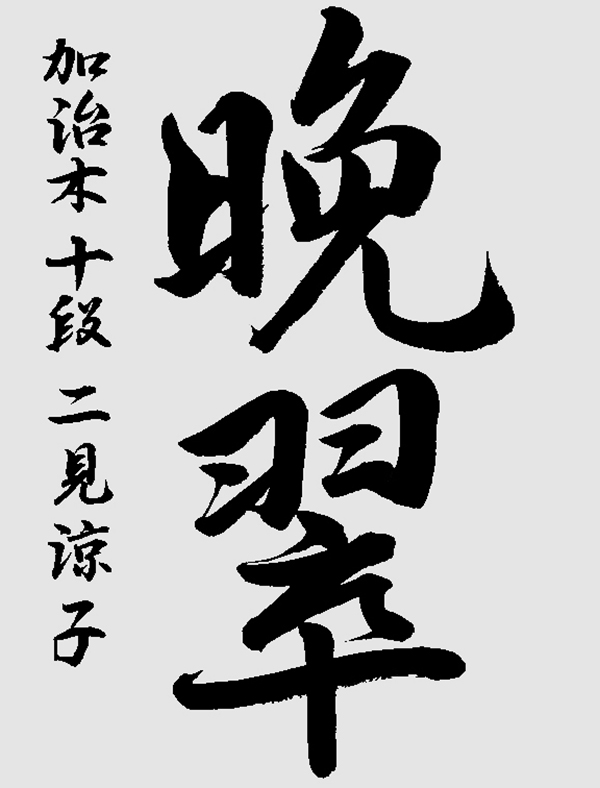 晩翠
加治木 十段 二見涼子